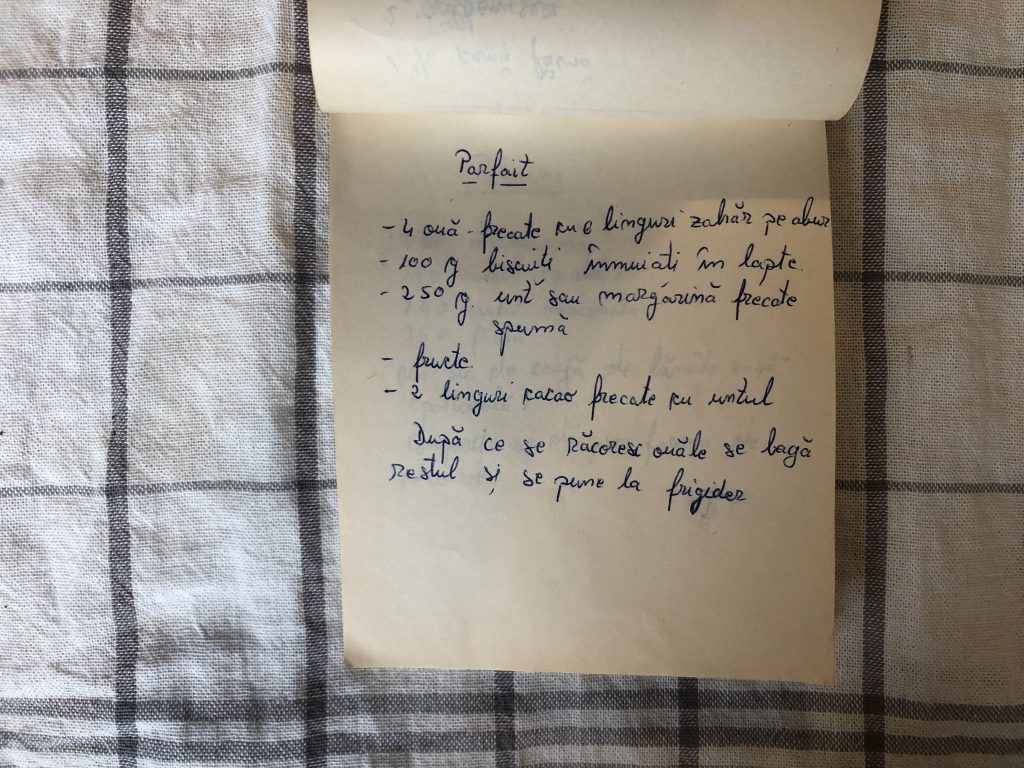 Parfait
- 4 ouă - frecate cu 6 linguri zahăr pe abur
- 100 g biscuiti înmuiati în lapte.
- 250 g. unt sau margarină frecate
spumă
- fructe.
- 2 linguri cacao frecate cu untul
După ce se răcoresc ouăle se bagă
restul și se pune la frigider